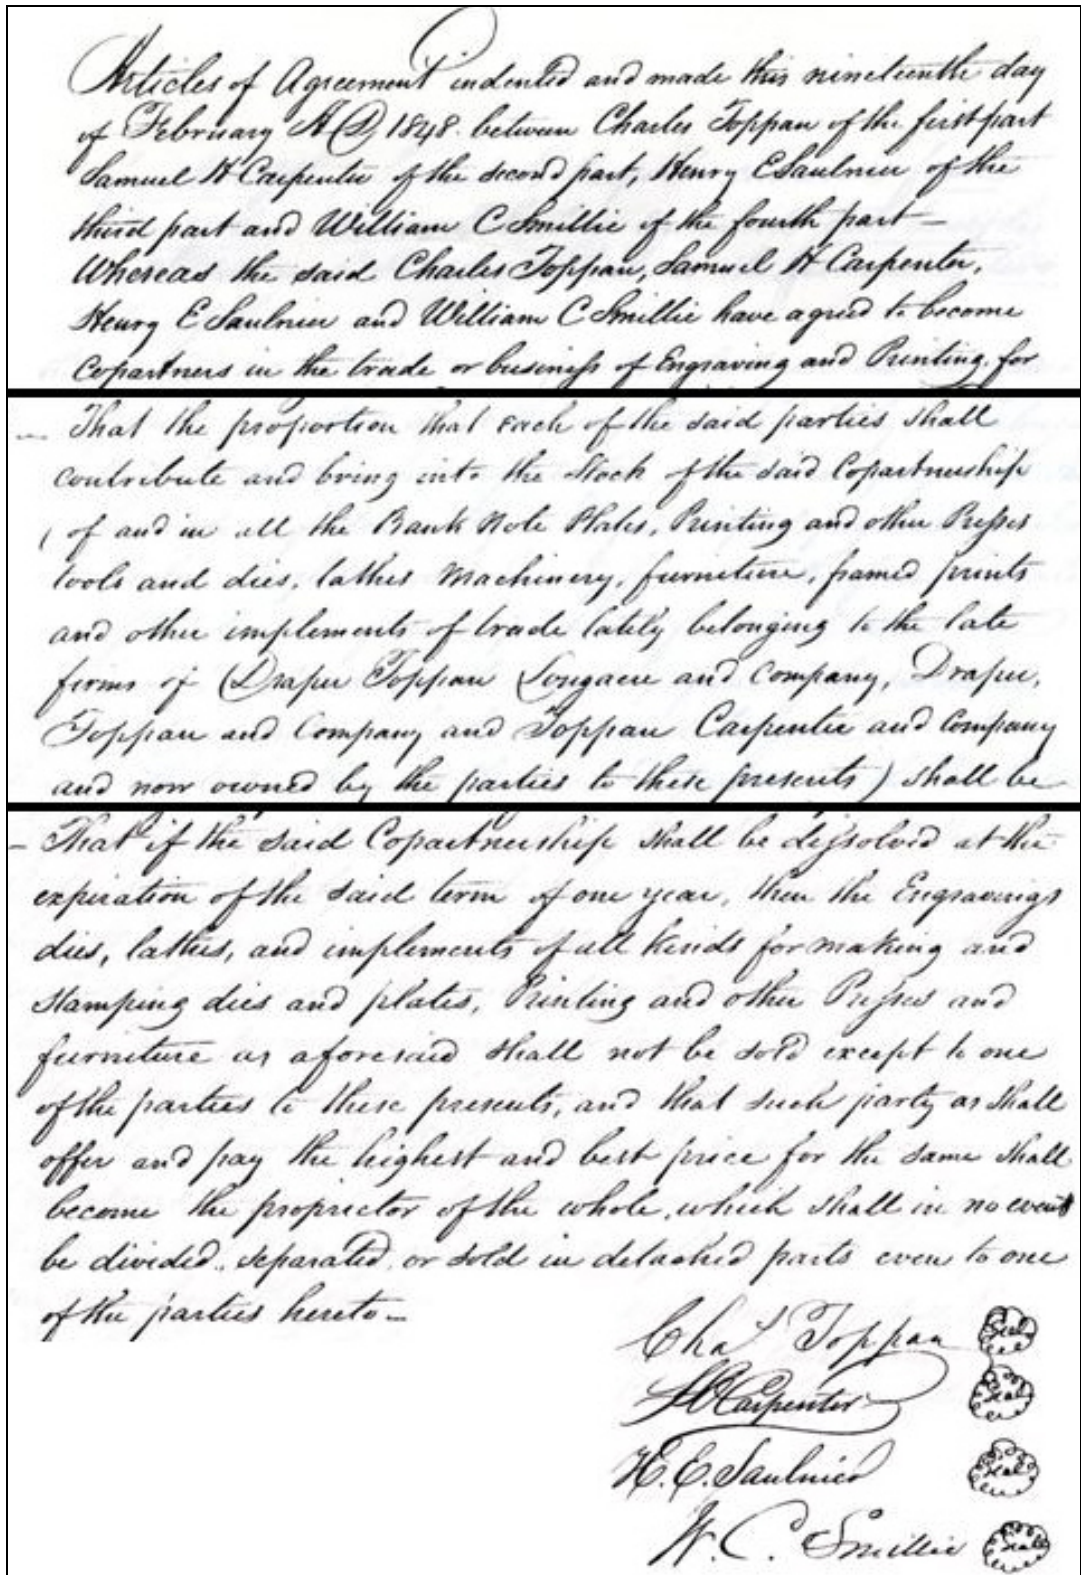 Articles of Agreement indented and made this nineteenth day
of February A.D. 1848. between Charles Toppan of the first part
Samuel H Carpenter of the second part, Henry E Saulnier of the
third part and William C Smillie of the fourth part —
Whereas the said Charles Toppan, Samuel H Carpenter,
Henry E Saulnier and William C Smillie have agreed to become
Copartners in the trade or business of Engraving and Printing for
— That the proportion that each of the said parties shall
contribute and bring into the Stock of the said Copartnership
( of and in all the Bank Note Plates, Printing and other Presses
tools and dies, lathes Machinery, furniture, framed prints
and other implements of trade lately belonging to the late
firms of Draper Toppan Longacre and Company, Draper,
Toppan and Company and Toppan Carpenter and Company
and now owned by the parties to these presents ) shall be
— That if the said Copartnership shall be dissolved at the
expiration of the said term of one year, then the Engravings
dies, lathes, and implements of all kinds for making and
stamping dies and plates, Printing and other Presses and
furniture as aforesaid shall not be sold except to one
of the parties to these presents, and that such party as shall
offer and pay the highest and best price for the same shall
become the proprietor of the whole, which shall in no event
be divided, separated, or sold in detached parts even to one
of the parties hereto —
Chas Toppan Seal
S H Carpenter Seal
H. E. Saulnier Seal
W. C. Smillie Seal